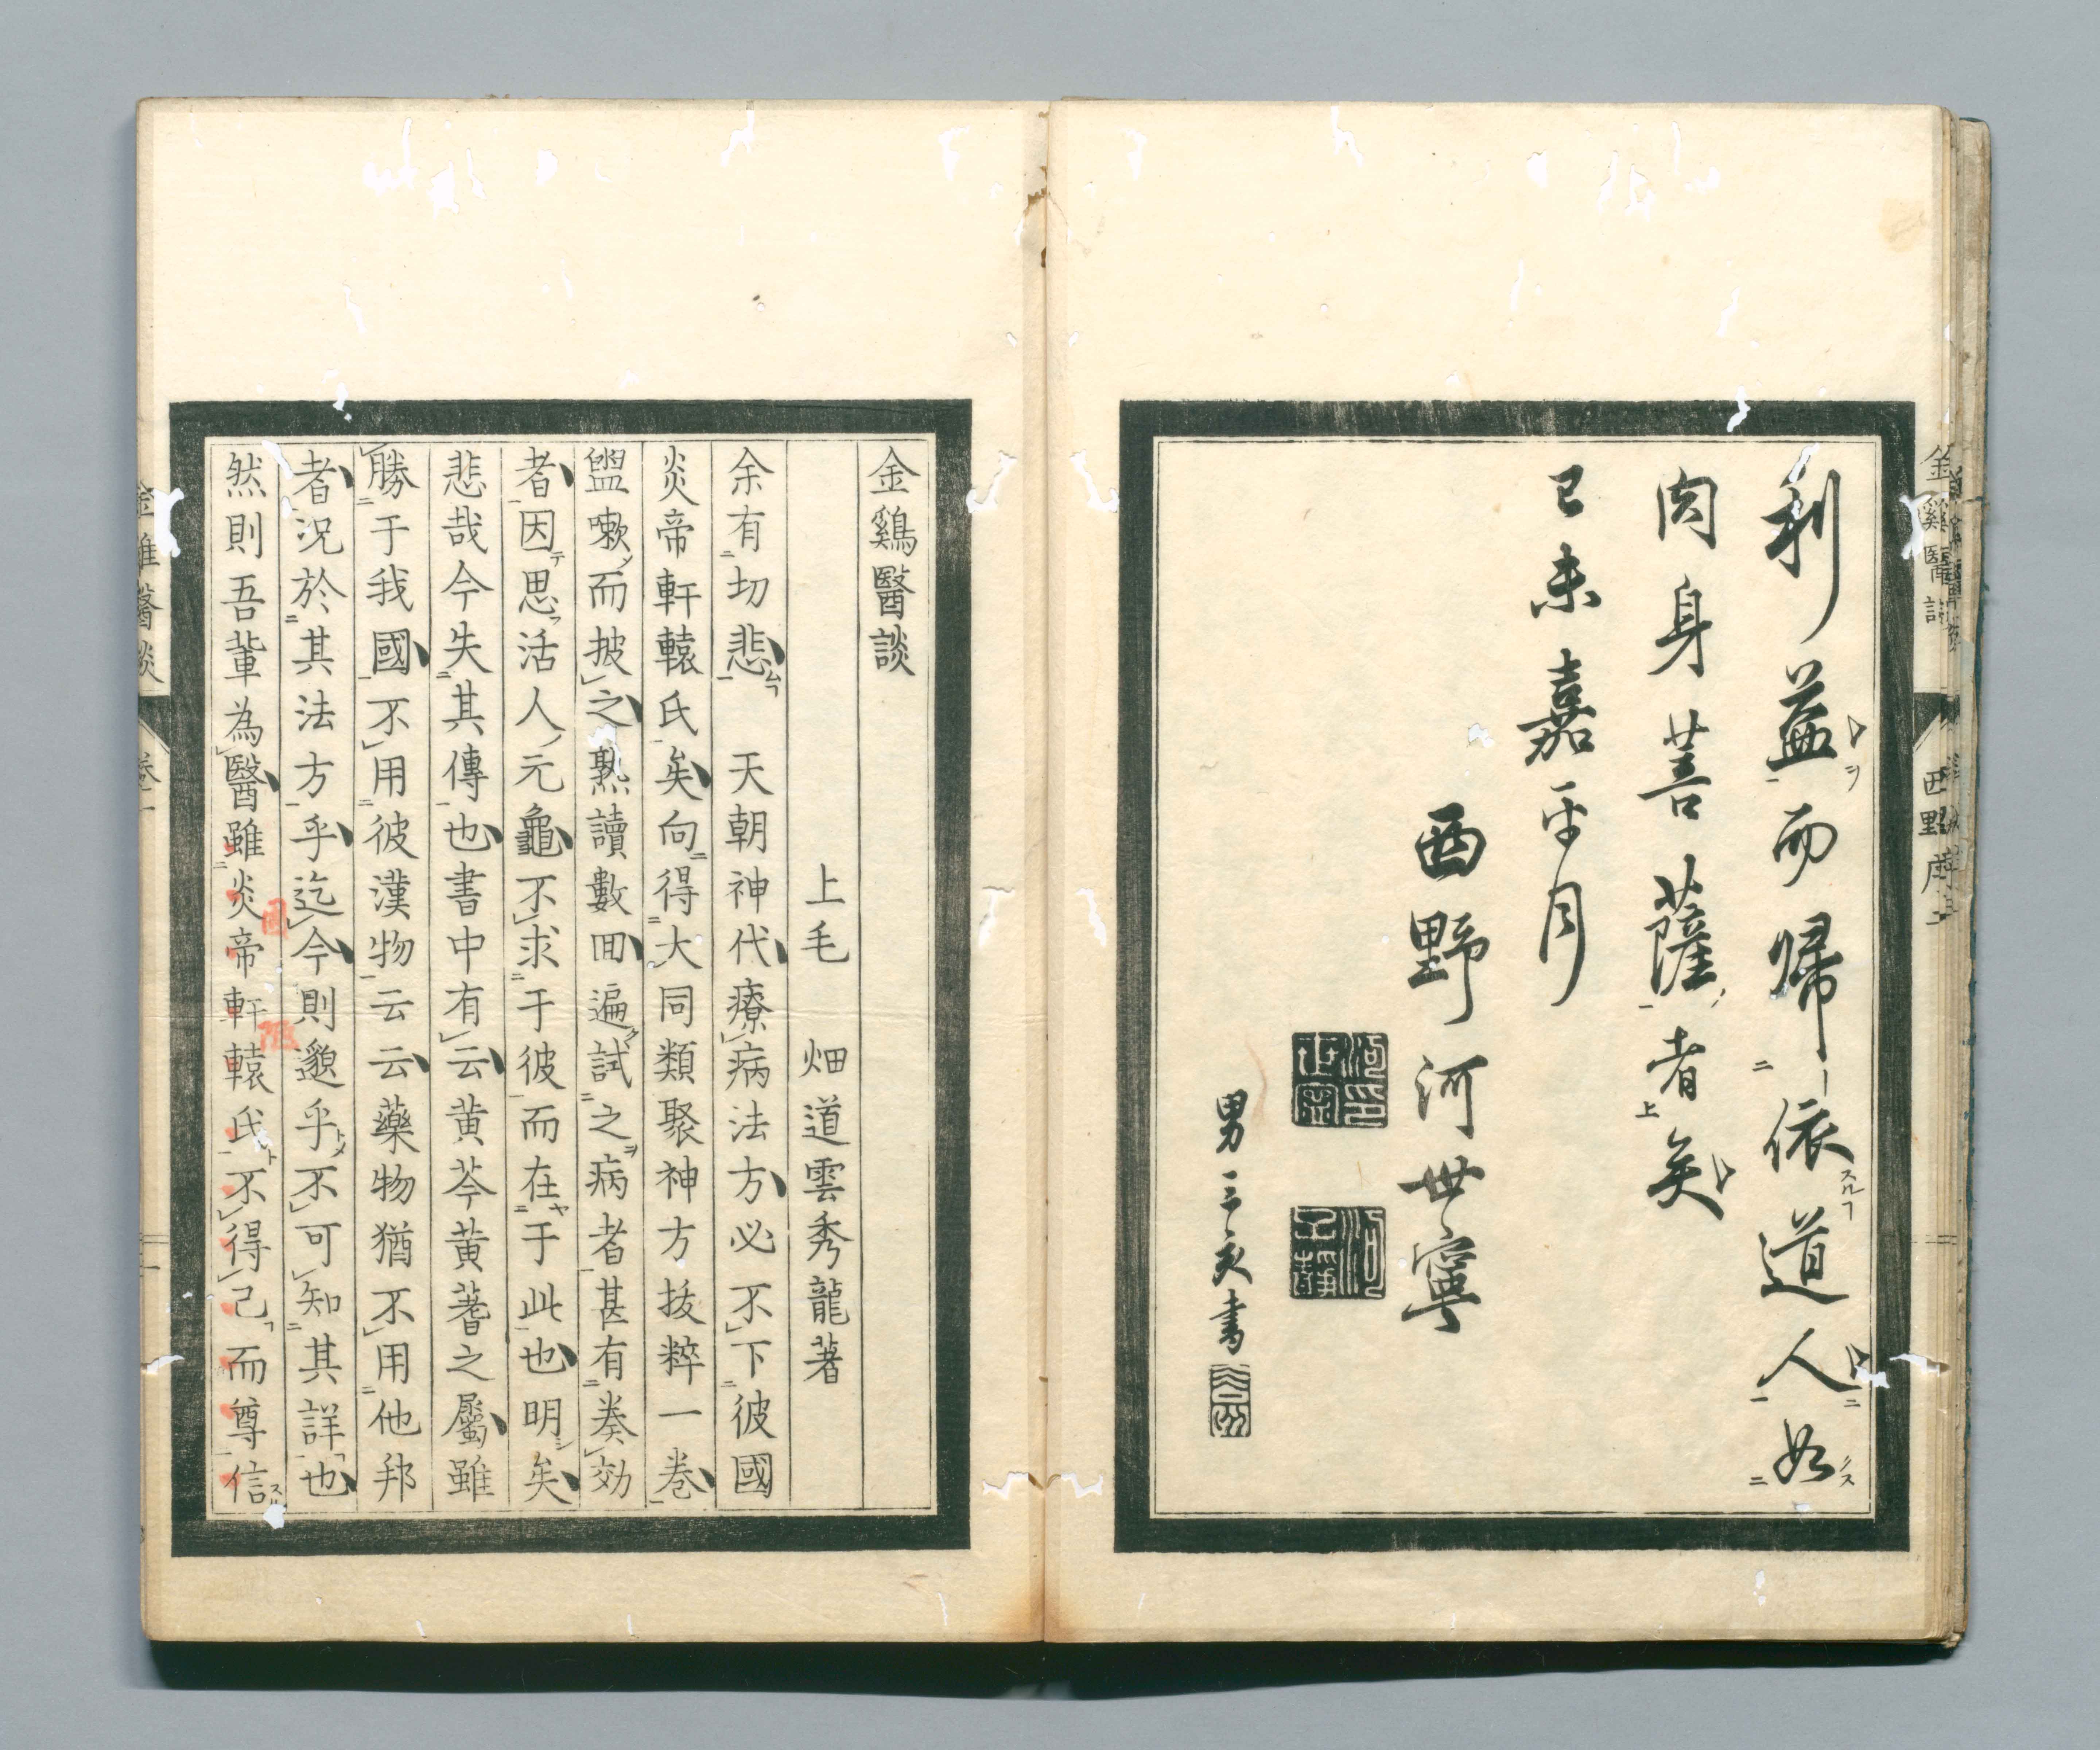 利益而歸依道人如
肉身菩薩者矣
己未嘉平月
西野河世寧
男三亥書
金鷄醫談
上毛　畑道雲秀龍著
余有切悲　天朝神代療病法方必不下彼國
炎帝軒轅氏矣向得大同類聚神方拔粹一卷
盥嗽而披之熟讀數回遍試之病者甚有奏効
者因思活人元龜不求于彼而在于此也明矣
悲哉今失其傳也書中有云黃芩黃蓍之屬雖
勝于我國不用彼漢物云云藥物猶不用他邦
者況於其法方乎迄今則邈乎不可知其詳也
然則吾輩為醫雖炎帝軒轅氏不得已而尊信